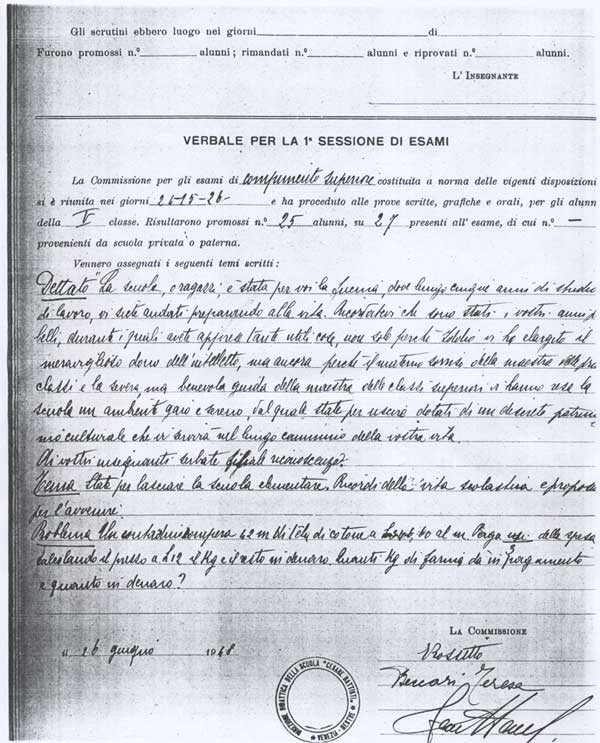 Gli scrutini ebbero luogo nei giorni di
Furono promossi n.º alunni; rimandati n.º alunni e riprovati n.º alunni.
L'INSEGNANTE
VERBALE PER LA 1ª SESSIONE DI ESAMI
La Commissione per gli esami di compimento superiore costituita a norma delle vigenti disposizioni
si è riunita nei giorni 24-25-26- e ha proceduto alle prove scritte, grafiche e orali, per gli alunni
della V classe. Risultarono promossi n.º 25 alunni, su 27 presenti all'esame, di cui n.º —
provenienti da scuola privata o paterna.
Vennero assegnati i seguenti temi scritti:
Dettato "La scuola, o ragazzi, è stata per voi la fucina, dove lungo cinque anni di studio
di lavoro, vi siete andati preparando alla vita. Ricordatevi che sono stati i vostri anni più
belli, durante i quali avete appreso tante utili cose, non solo perchè Iddio vi ha elargito il
meraviglioso dono dell'intelletto, ma ancora perchè il materno sorriso della maestra delle prime
classi e la severa, ma benevola guida della maestra delle classi superiori vi hanno resa la
scuola un ambiente gaio e sereno, dal quale state per uscire dotati di un discreto patrimo-
nio culturale che vi servirà nel lungo cammino della vostra vita.
Ai vostri insegnanti serbate filiale riconoscenza".
Tema State per lasciare la scuola elementare. Ricordi della vita scolastica e propositi
per l'avvenire.
Problema Un contadino compera 42 m di tela di cotone a al m. Paga della spesa
calcolando il prezzo a L 12 il Kg e il resto in denaro. Quanti Kg di farina dà in pagamento
e quanto in denaro?
LA COMMISSIONE
li 26 giugno 1948
Rossetto
Beccari Teresa
DIREZIONE DIDATTICA DELLA SCUOLA "CESARE BATTISTI" VENEZIA - MESTRE